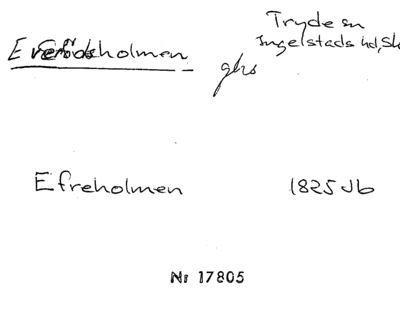 Tryde sn
Ingelstads hd, Sk
holmen ghs
Efreholmen 1825 Jb
Nr 17805